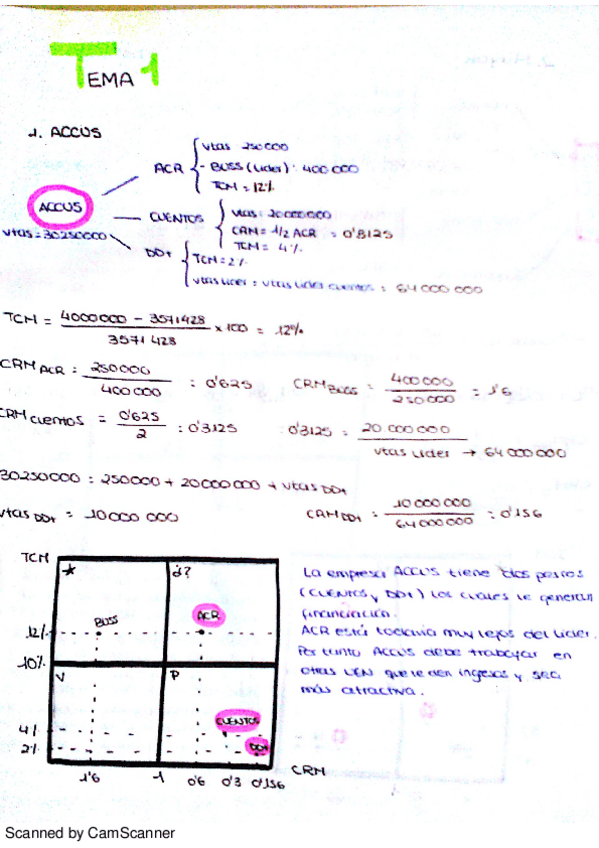 TEMA 1
1. ACCUS
ACCUS
vtas = 30250000
ACR
vtas: 250000
- BUSS (Lider): 400 000
TCM = 12%
CUENTOS
vtas: 20000000
CRM = 1/2 ACR = 0'3125
TCM = 4%
DD+
TCM = 2%
vtas lider = vtas lider cuentos = 64 000 000
TCM = 4000000 - 3571428 / 3571 428 x 100 = 12%
CRM ACR = 250000 / 400 000 = 0'625
CRM BUSS = 400 000 / 250 000 = 1'6
CRM cuentos = 0'625 / 2 = 0'3125
0'3125 = 20.000 000 / vtas lider → 64 000 000
30250000 = 250000 + 20 000 000 + vtas DD+
vtas DD+ = 10 000 000
CRM DD+ = 10 000 000 / 64 000 000 = 0'156
TCM
*
¿?
BUSS
ACR
12%
10%
V
P
CUENTOS
4%
DD+
2%
1'6
1
0'6
0'3
0'156
CRM
La empresa ACCUS tiene dos perros
(cuentos y DD+) los cuales le generan
financiación.
ACR está todavía muy lejos del lider.
Por tanto ACCUS debe trabajar en
otras UEN que le den ingresos y sea
más atractiva.
Scanned by CamScanner